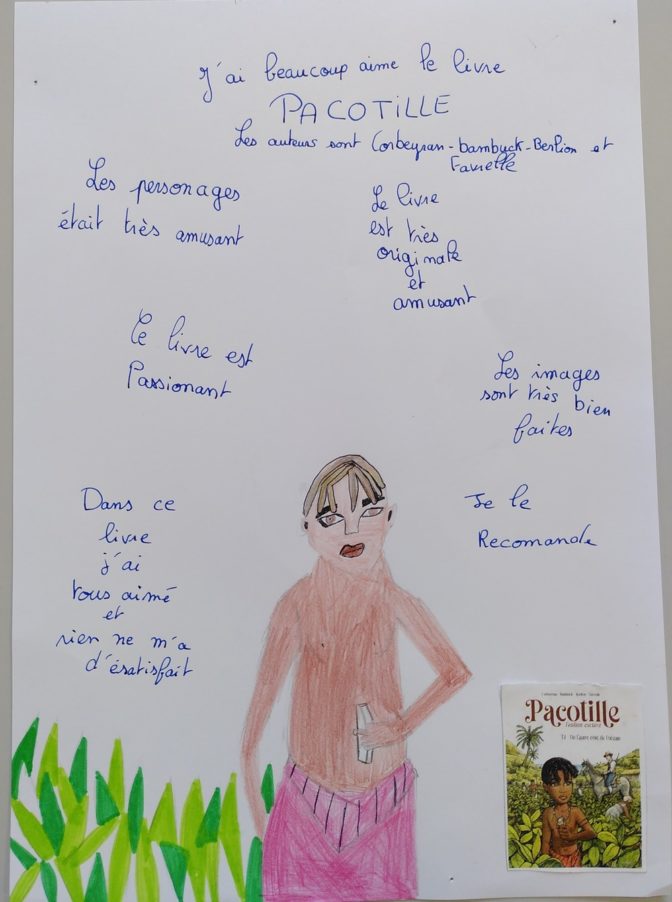 J'ai beaucoup aime le livre
PACOTILLE
Les auteurs sont Corbeyran-bambuck-Berlion et
Favrelle
Les personages
était très amusant
Le livre
est très
originale
et
amusant
Ce livre est
Passionant
Les images
sont très bien
faites
Dans ce
livre
j'ai
tous aimé
et
rien ne m'a
d'ésatisfait
Je le
Recomande
Pacotille
l'enfant esclave